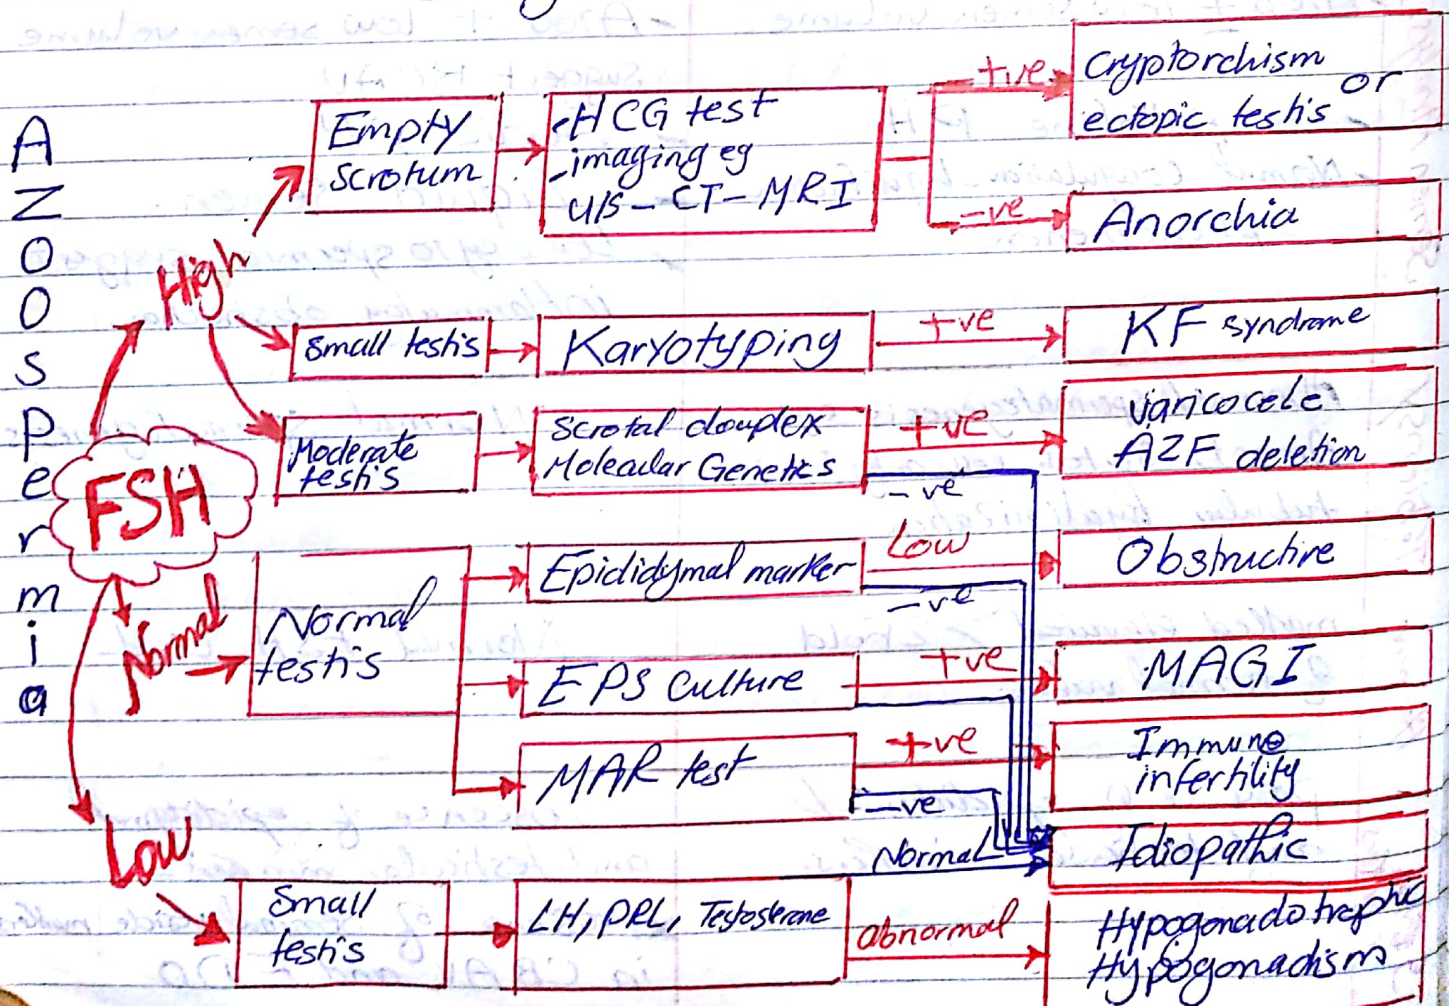 Azoospermia
FSH
High
Empty
scrotum
-HCG test
-imaging eg
U/S - CT - MRI
+ve
Cryptorchism or
ectopic testis
-ve
Anorchia
Small testis
Karyotyping
+ve
KF syndrome
Moderate
testis
Scrotal douplex
Molecular Genetics
+ve
varicocele
AZF deletion
-ve
Normal
Normal
testis
Epididymal marker
Low
Obstructive
-ve
EPS culture
+ve
MAGI
MAR test
+ve
Immune
infertility
-ve
Normal
Idiopathic
Low
Small
testis
LH, PRL, Testosterone
abnormal
Hypogonadotrophic
Hypogonadism